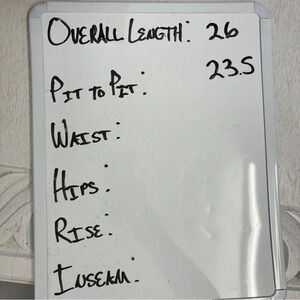 Overall Length: 26
Pit to Pit: 23.5
Waist:
Hips:
Rise:
Inseam: